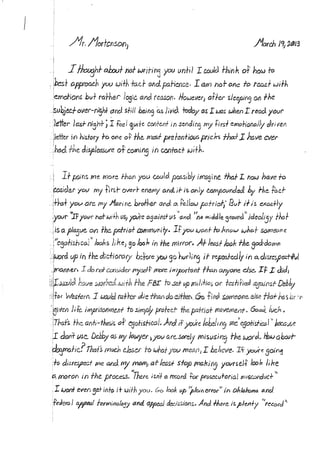 Mr. Mortenson,
March 19, 2013
I thought about not writing you until I could think of how to
best approach you with tact and patience. I am not one to react with
emotions but rather logic and reason. However, after sleeping on the
subject over-night and still being as livid today as I was when I read your
letter last night; I feel quite content in sending my first emotionally driven
letter in history to one of the most pretentious pricks that I have ever
had the displeasure of coming in contact with.
It pains me more than you could possibly imagine that I now have to
consider you my first overt enemy and it is only compounded by the fact
that you are my Marine brother and a fellow patriot! But it is exactly
your "If your not with us, you're against us" and "no middle ground" ideology that
is a plague on the patriot community. If you want to know what someone
"egotistical" looks like, go look in the mirror. At least look the goddamn
word up in the dictionary before you go hurling it repeatedly in a disrespectful
manner. I do not consider myself more important than anyone else. If I did,
I would have worked with the FBI to set up militias, or testified against Debby
for Western. I would rather die than do either. Go find someone else that has
given life imprisonment to simply protect the patriot movement. Good luck.
That's the anti-thesis of egotistical! And if you're labeling me "egotistical" because
I don't use Debby as my lawyer, you are sorely misusing the word. How about
dogmatic? That's much closer to what you mean, I believe. If you're going
to disrespect me and my mom, at least stop making yourself look like
a moron in the process. "There isn't a record for prosecutorial misconduct"
I won't even get into it with you. Go look up "plain error" in Oklahoma and
federal appeal terminology and appeal decisions. And there is plenty "record"